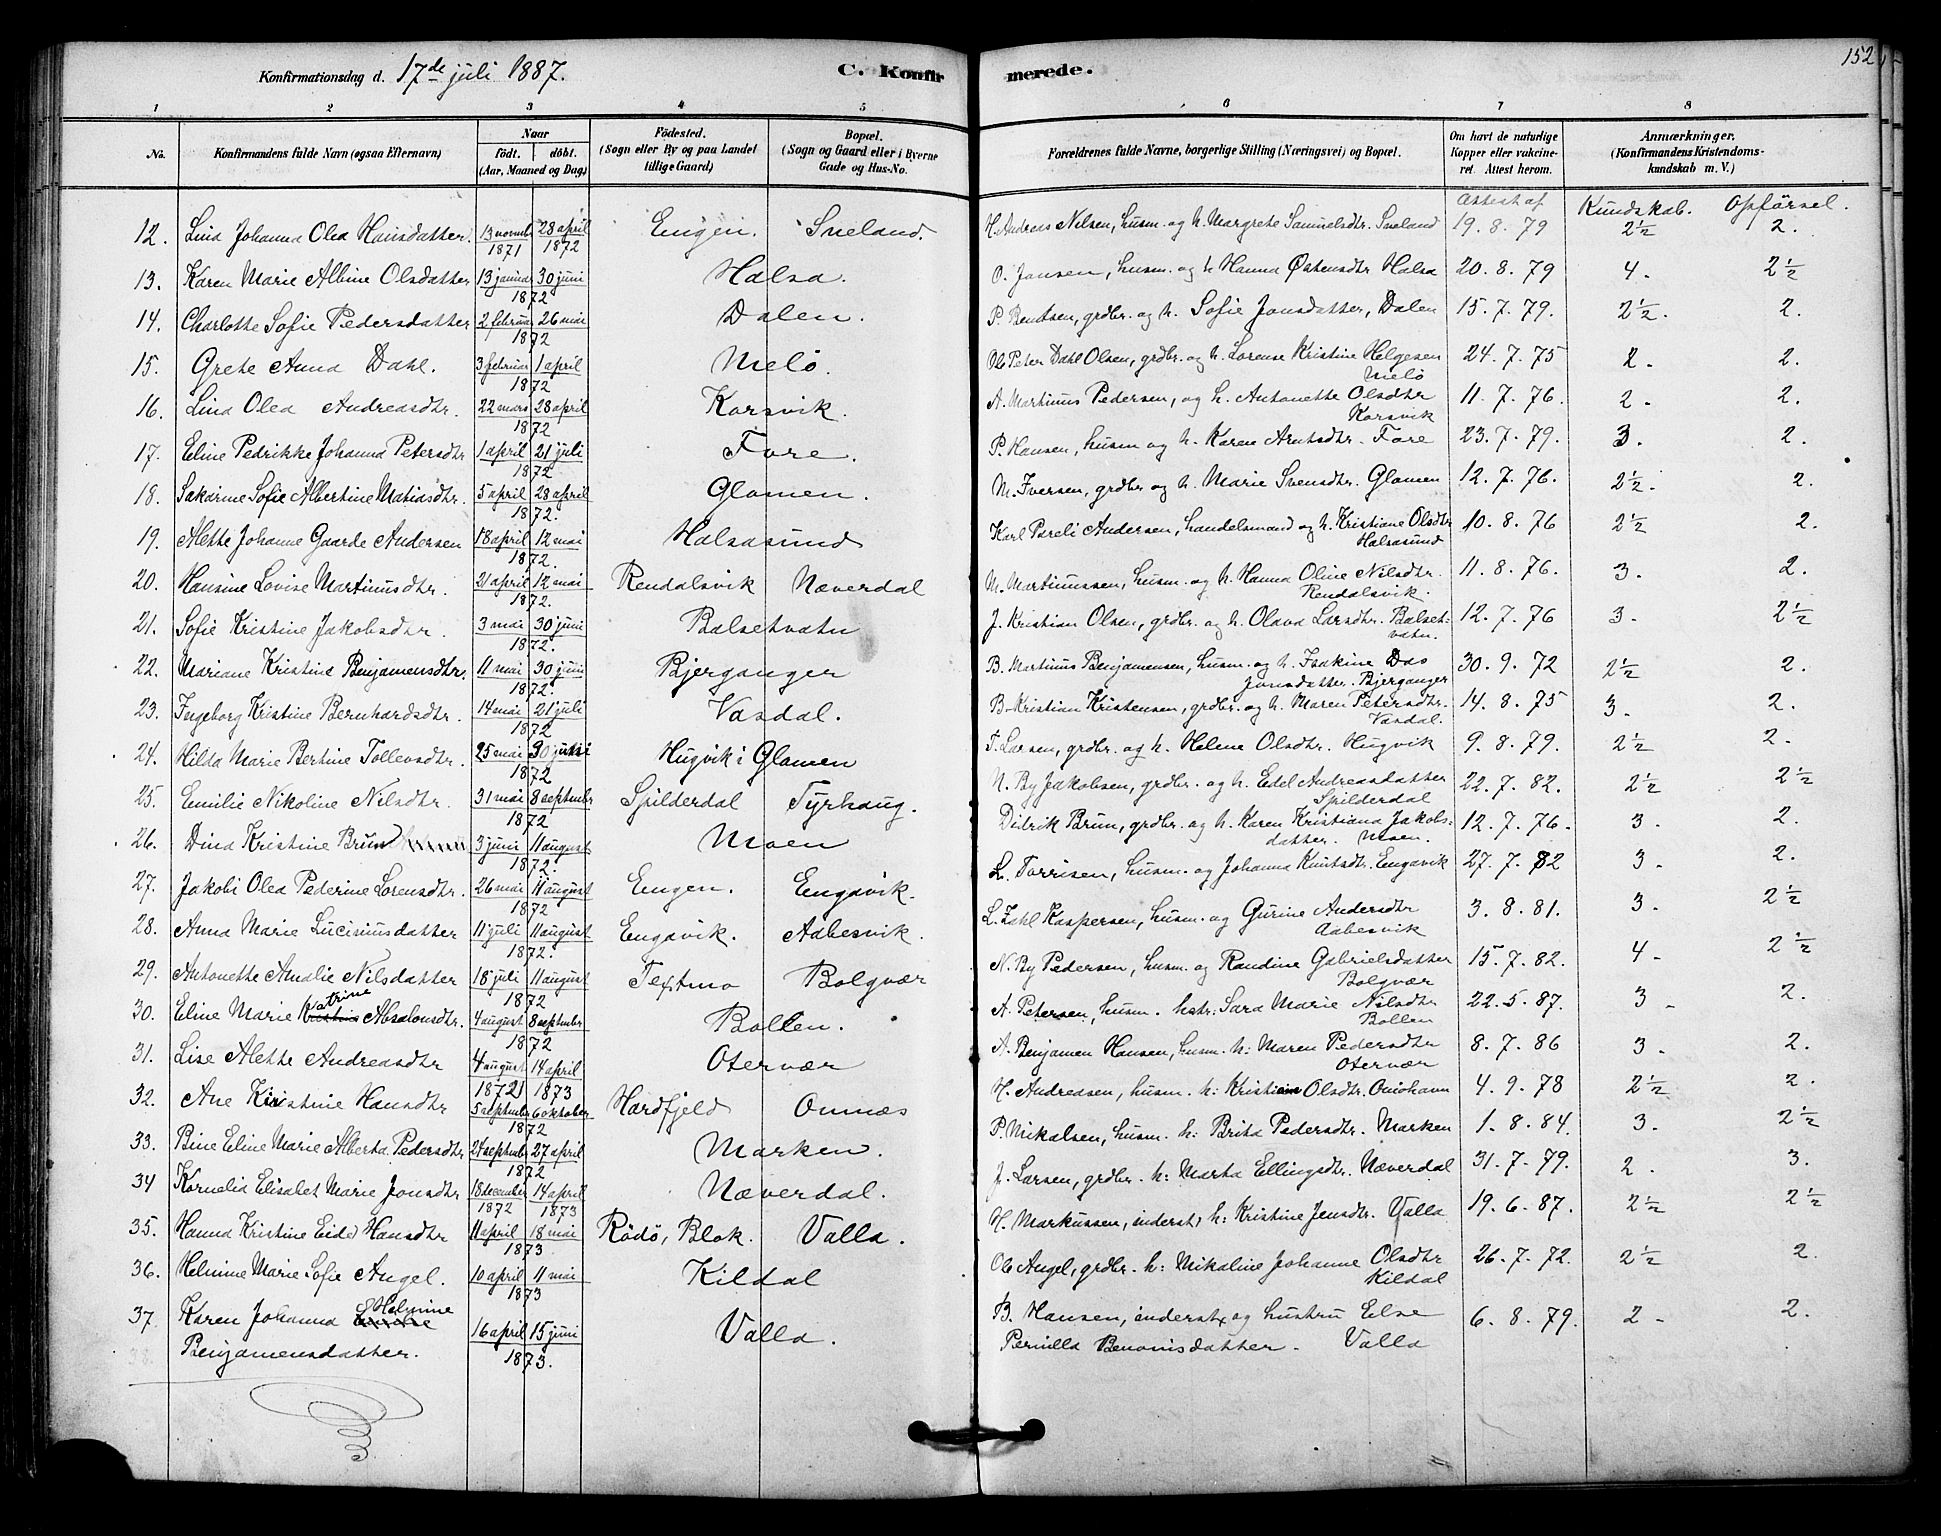 152
Konfirmationsdag d. 17de juli 1887. C. Konfirmerede.
1 2 3 4 5 6 7 8
No. Konfirmandens fulde Navn (ogsaa Efternavn) Naar födt. döbt. (Aar, Maaned og Dag) Födested. (Sogn eller By og paa Landet tillige Gaard) Bopæl. (Sogn og Gaard eller i Byerne Gade og Hus-No. Forældrenes fulde Navne, borgerlige Stilling (Næringsvei) og Bopæl. Om havt de naturlige Kopper eller vakcineret. Attest herom. Anmærkninger. (Konfirmandens Kristendomskundskab m. V.)
Attest af Kundskab. Opförsel.
12. Lina Johanna Olea Hansdatter. 13 novmb 1871 28 april 1872 Engen. Sneland. H. Andreas Nilsen, husm. og h. Margrete Samuelsdtr. Sneland 19. 8. 79 2½ 2.
13. Karen Marie Albine Olsdatter 13 januar 30 juni 1872 Halsa. O. Jansen, husm. og h. Hanna Østensdtr Halsa 20. 8. 79 4. 2½
14. Charlotte Sofie Pedersdatter 2 februar 26 mai 1872 Dalen. P. Bentsen, grdbr. og h. Sofie Jonsdatter, Dalen 15. 7. 79. 2½. 2.
15. Grete Anna Dahl. 3 februar 1 april 1872 Melö. Ole Peter Dahl Olsen, grdbr. og h. Lorense Kristine Helgesen Melö 24. 7. 75 2. 2.
16. Lina Olea Andreasdtr. 22 mars 28 april 1872 Korsvik. A. Martinus Pedersen, og h. Antonette Olsdtr Korsvik 11. 7. 76. 2. 2.
17. Eline Pedrikke Johanna Petersdtr 1 april 21 juli 1872 Fore. P. Hansen, husm og h. Karen Arntsdtr. Fore 23. 7. 79. 3. 2.
18. Sakarine Sofie Albertine Matiasdtr. 5 april 28 april 1872. Glomen. M. Iversen, grdbr og h. Marie Svensdtr. Glomen 12. 7. 76. 2½. 2.
19. Alette Johanne Gaarde Andersen 18 april 12 mai 1872. Halsasund Karl Pareli Andersen, handelsmand og h. Kristiane Olsdtr Halsasund 10. 8. 76 2½ 2.
20. Hansine Lovise Martinusdtr. 21 april 12 mai 1872. Rendalsvik Næverdal M. Martinussen, husm. og h. Hanna Oline Nilsdtr. Rendalsvik. 11. 8. 76. 3. 2.
21. Sofie Kristine Jakobsdtr. 3 mai 30 juni 1872. Balsetvatn J. Kristian Olsen, grdbr. og h. Olava Larsdtr. Balsetvatn. 12. 7. 76 3. 2½
22. Mariane Kristine Benjamensdtr. 11 mai 30 juni 1872. Bjerganger B. Martinus Benjamensen, husm. og h. Isakine Das Jonsdatter. Bjerganger 30. 9. 72 2½ 2.
23. Ingeborg Kristine Bernhardsdtr. 14 mai 21 juli 1872 Vasdal. B. Kristian Kristensen, grdbr. og h. Maren Petersdtr. Vasdal. 14. 8. 75 3. 2.
24. Hilda Marie Bertine Tollevsdtr. 25 mai 30 juni 1872 Hugvik i Glomen T. Larsen, grdbr. og h. Helene Olsdtr. Hugvik 9. 8. 79. 2½ 2.
25. Emilie Nikoline Nilsdtr. 31 mai 8 september 1872 Spilderdal Tyrhaug. N. By Jakobsen, grdbr. og h. Edel Andreasdatter Spilderdal 22. 7. 82. 2½ 2½
26. Dina Kristine Brun 3 juni 11 august 1872. Moen Didrik Brun, grdbr. og h. Karen Kristiana Jakobsdatter. Moen. 12. 7. 76. 3. 2.
27. Jakobi Olea Pederine Lorensdtr. 26 mai 11 august 1872 Engen. Engavik. L. Torrisen, husm. og Johanna Knutsdtr. Engavik 27. 7. 82 3. 2.
28. Anna Marie Luciniusdatter 11 juli 11 august 1872. Engavik. Aabesvik. L. Zahl Kaspersen, husm. og Gurine Andersdtr Aabesvik 3. 8. 81. 3. 2½
29. Antonette Amalie Nilsdatter 18 juli 11 august 1872 Textmo Bolgvær N. By Pedersen, husm. og Randine Gabrielsdatter Bolgvær 15. 7. 82. 4. 2½
30. Eline Marie Katrine Absalonsdtr. 4 august 8 september 1872 Bollen. A. Petersen, husm. hstr: Sara Marie Nilsdtr Bollen 22. 5. 87. 3. 2.
31. Lise Alette Andreasdtr 4 august 1872 14 april 1873 Otervær A. Benjamen Hansen, husm. h: Maren Pedersdtr Otervær 8. 7. 86 3. 2.
32. Ane Kristine Hansdtr 5 september 6 oktober 1872 Hardfjeld Ornæs H. Andreasen, husm. h: Kristian Olsdtr. 4. 9. 78 2½ 2.
33. Bine Eline Marie Alberta Pedersdtr 24 september 27 april 1872 Marken. P. Mikalsen, husm. h: Brita Pedersdtr. Marken 1. 8. 84. 3. 2½
34 Kornelia Elisabet Marie Jonsdtr 18 december 1872 14 april 1873 Næverdal. J. Larsen, grdbr. h: Marta Ellingsdtr. Næverdal 31. 7. 79. 2. 3.
35. Hanna Kristine Eide Hansdtr 11 april 18 mai 1873 Rödö, Blok. Valla. H. Markussen, inderst, h: Kristine Jensdtr. Valla 19. 6. 87. 2½ 2½
36. Helmine Marie Sofie Angel. 10 april 11 mai 1873 Kildal Ole Angel, grdbr. h: Mikaline Johanne Olsdtr Kildal 26. 7. 72. 2½ 2.
37. Karen Johanna Helmine Benjamensdatter. 16 april 15 juni 1873. Valla. B. Hansen, inderst og hustru Else Pernilla Benonisdatter. Valla 6. 8. 79. 2. 2.
38.